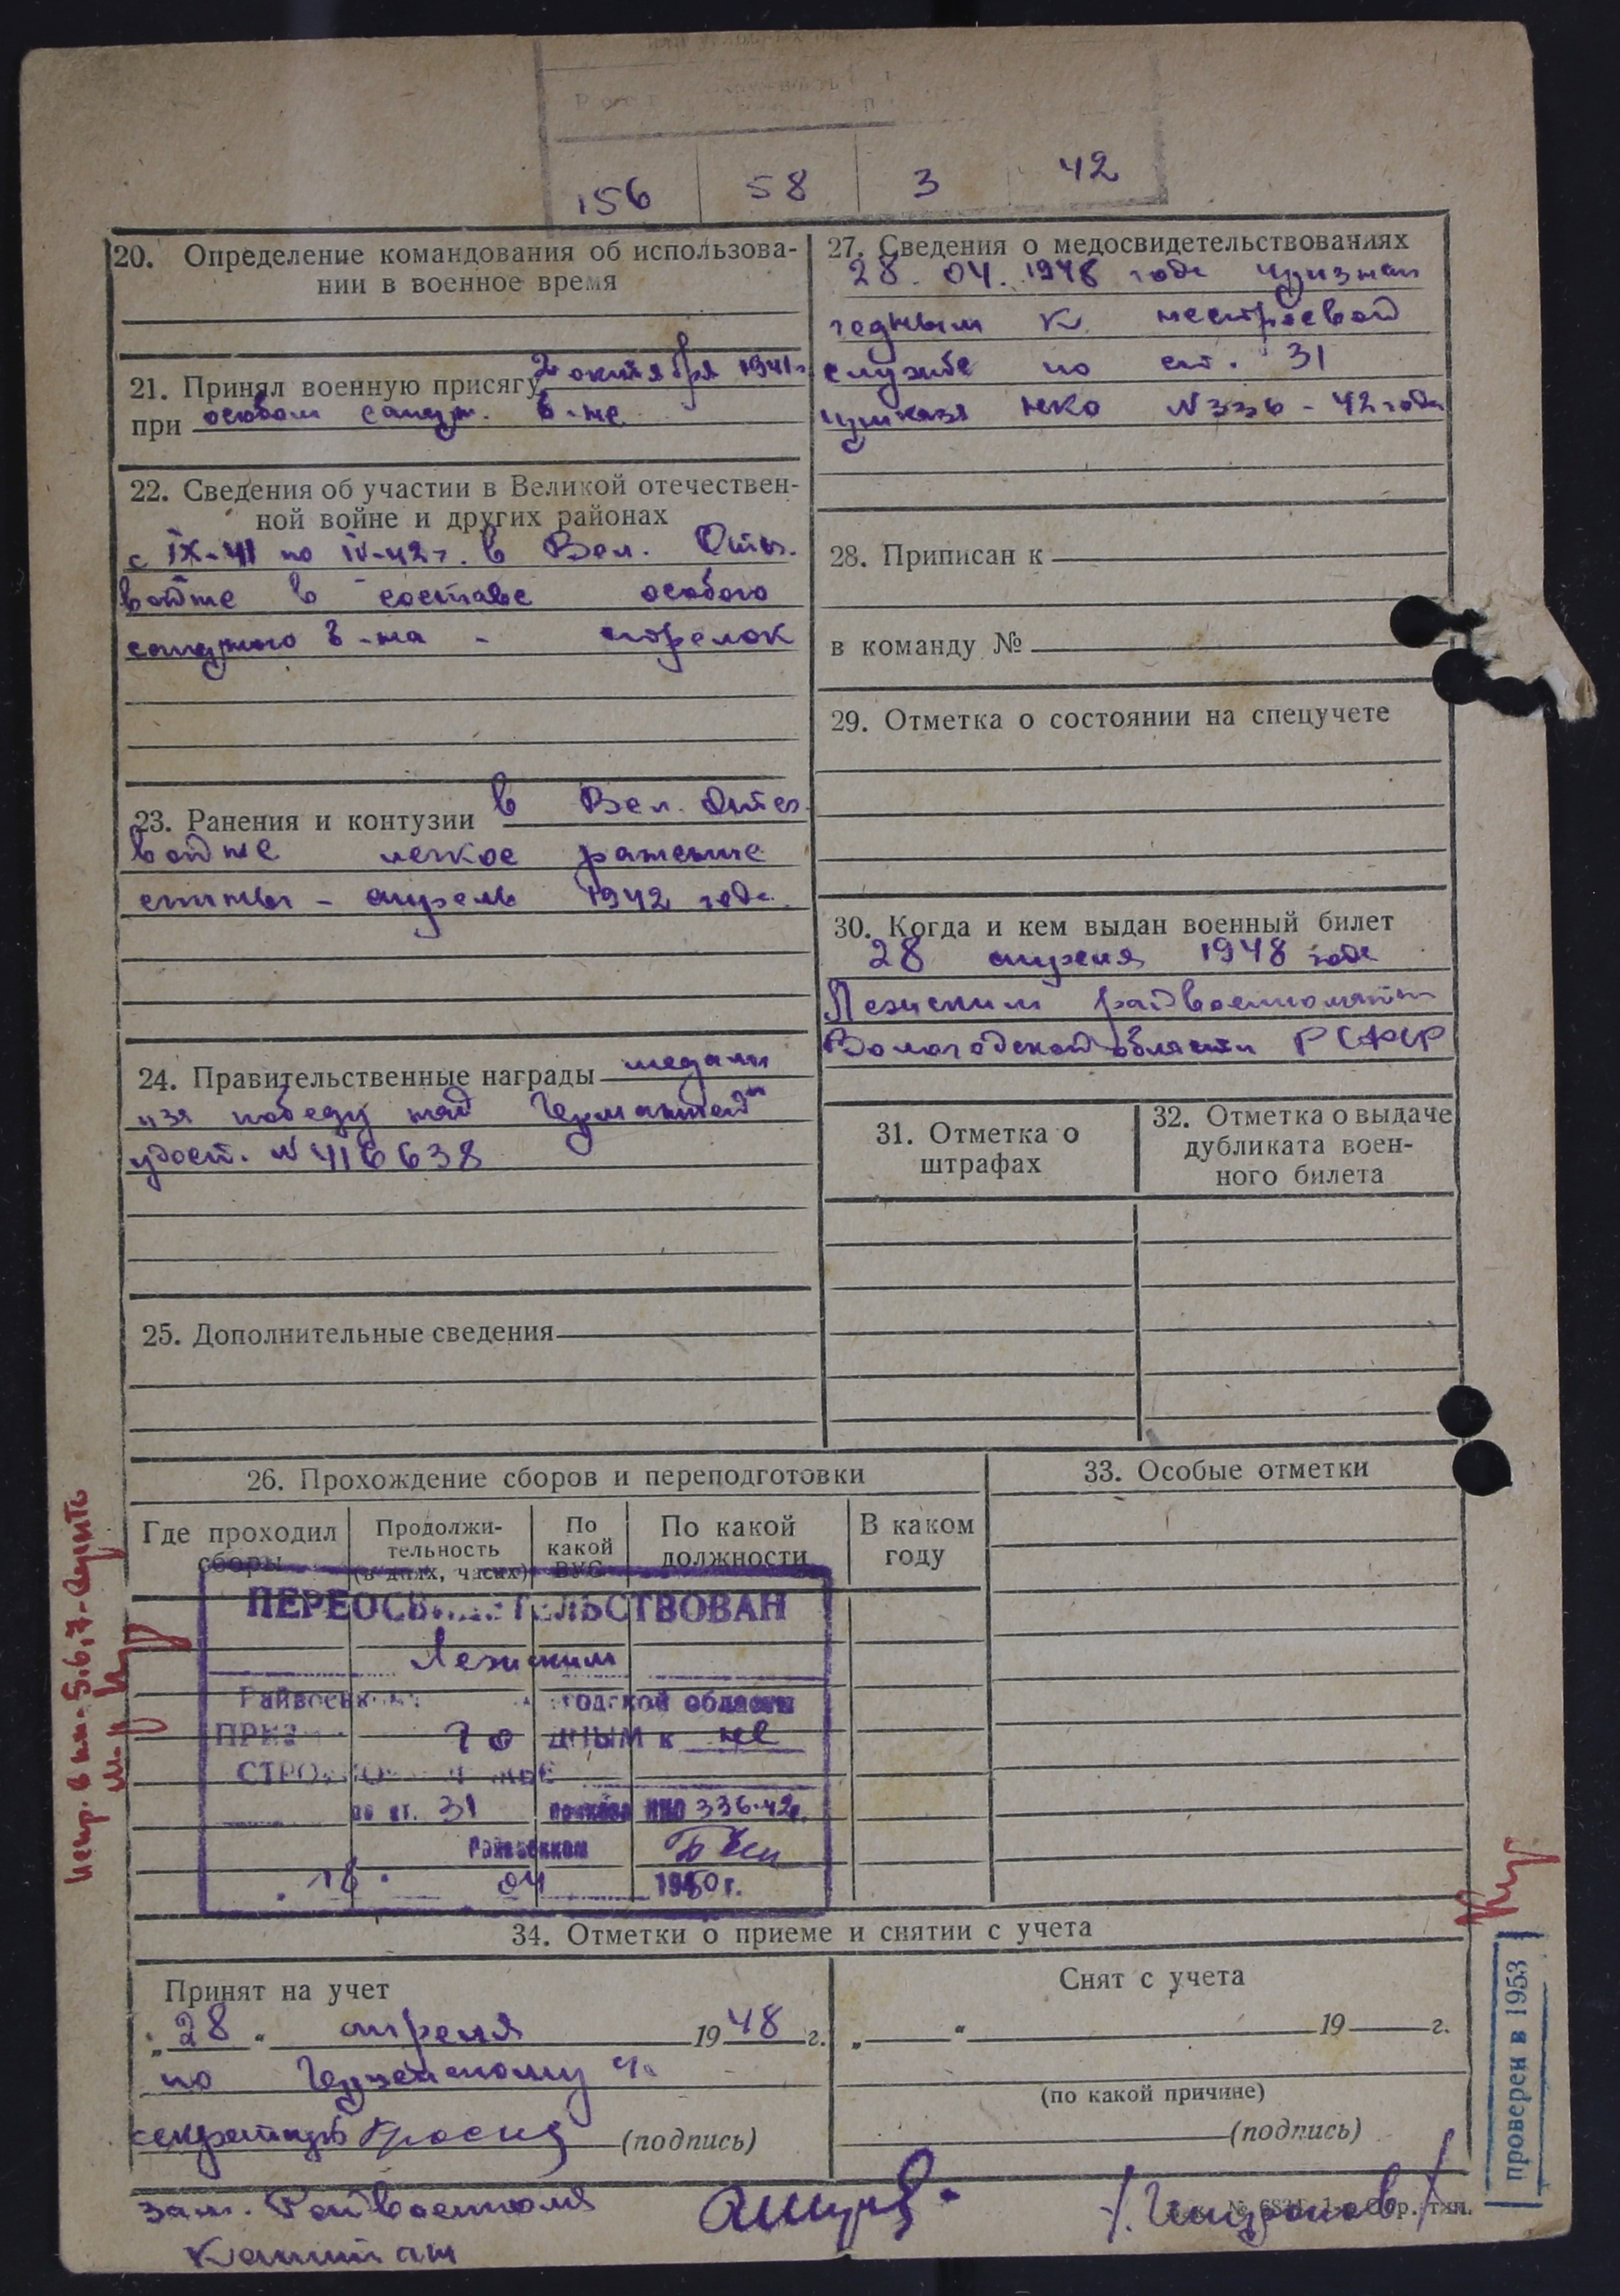 Рост
156 58 3 42
20. Определение командования об использова-
нии в военное время
21. Принял военную присягу 2 октября 1941г
при особом сапер. б-не
22. Сведения об участии в Великой отечествен-
ной войне и других районах
с IX-41 по IV-42г. в Вел. Отеч.
войне в составе особого
саперного б-на - стрелок
23. Ранения и контузии в Вел. Отеч.
войне легкое ранение
спины - апрель 1942 года.
24. Правительственные награды медаль
"за победу над Германией"
удост. № 416638
25. Дополнительные сведения
27. Сведения о медосвидетельствованиях
28. 04. 1948 года признан
годным к нестроевой
службе по ст. 31
приказа НКО №336-42 года
28. Приписан к
в команду №
29. Отметка о состоянии на спецучете
30. Когда и кем выдан военный билет
28 апреля 1948 года
Лежским райвоенкоматом
Вологодской области РСФСР
31. Отметка о
штрафах
32. Отметка о выдаче
дубликата воен-
ного билета
26. Прохождение сборов и переподготовки
Где проходил
сборы
Продолжи-
тельность
(в днях, часах)
По
какой
ВУС
По какой
должности
В каком
году
33. Особые отметки
ПЕРЕОСВИДЕТЕЛЬСТВОВАН
Лежским
Райвоенком годской области
ПРИЗ го дным к не
СТРОЕВО
по ст. 31 приказа НКО 336-42г.
Райвоенком
16. 04 1950 г.
34. Отметки о приеме и снятии с учета
Принят на учет
„28“ апреля 1948 г.
по
секретарь (подпись)
Снят с учета
„ “ 19 г.
(по какой причине)
(подпись)
зам. Райвоенкома
Капитан
проверен в 1953
Испр. в пп. 5,6,7-